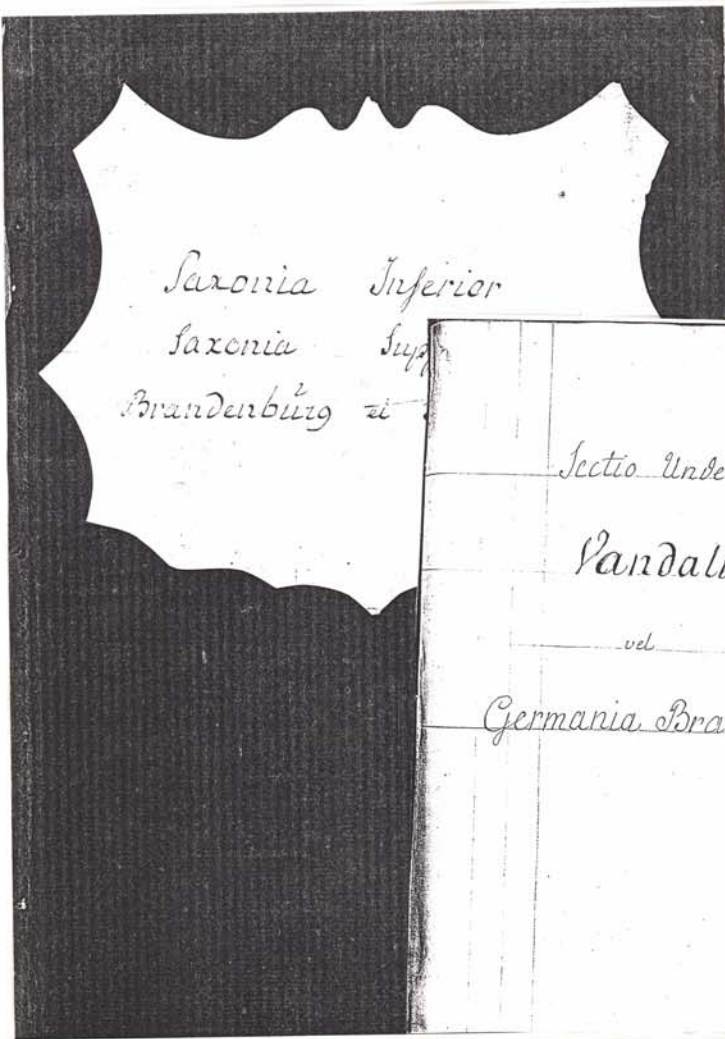 Saxonia Inferior
Saxonia Sup
Brandenburg et
Sectio Unde
Vandali
vel
Germania Bra